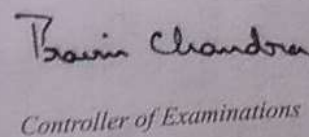 Pravin Chandra
Controller of Examinations